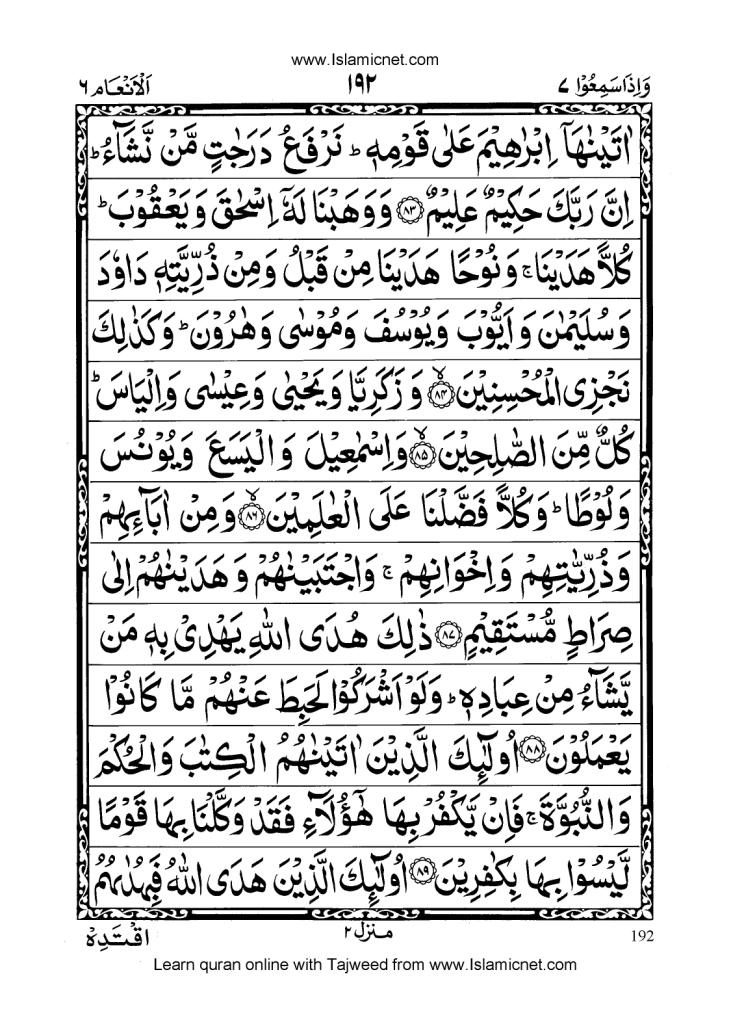 www.Islamicnet.com
وَاِذَاسَمِعُوْا ٧ ١٩٢ اَلْاَنْعَام ٦
اٰتَيْنٰهَاۤ اِبْرٰهِيْمَ عَلٰى قَوْمِهٖ ؕ نَرْفَعُ دَرَجٰتٍ مَّنْ نَّشَآءُ ؕ
اِنَّ رَبَّكَ حَكِيْمٌ عَلِيْمٌ ﴿٨٣﴾ وَوَهَبْنَا لَهٗۤ اِسْحٰقَ وَيَعْقُوْبَ ؕ
كُلًّا هَدَيْنَا ۚ وَنُوْحًا هَدَيْنَا مِنْ قَبْلُ وَمِنْ ذُرِّيَّتِهٖ دَاوٗدَ
وَسُلَيْمٰنَ وَاَيُّوْبَ وَيُوْسُفَ وَمُوْسٰى وَهٰرُوْنَ ؕ وَكَذٰلِكَ
نَجْزِى الْمُحْسِنِيْنَ ﴿٨٤﴾ۙ وَزَكَرِيَّا وَيَحْيٰى وَعِيْسٰى وَاِلْيَاسَ ؕ
كُلٌّ مِّنَ الصّٰلِحِيْنَ ﴿٨٥﴾ۙ وَاِسْمٰعِيْلَ وَالْيَسَعَ وَيُوْنُسَ
وَلُوْطًا ؕ وَكُلًّا فَضَّلْنَا عَلَى الْعٰلَمِيْنَ ﴿٨٦﴾ۙ وَمِنْ اٰبَآئِهِمْ
وَذُرِّيّٰتِهِمْ وَاِخْوَانِهِمْ ۚ وَاجْتَبَيْنٰهُمْ وَهَدَيْنٰهُمْ اِلٰى
صِرَاطٍ مُّسْتَقِيْمٍ ﴿٨٧﴾ ذٰلِكَ هُدَى اللّٰهِ يَهْدِىْ بِهٖ مَنْ
يَّشَآءُ مِنْ عِبَادِهٖ ؕ وَلَوْ اَشْرَكُوْا لَحَبِطَ عَنْهُمْ مَّا كَانُوْا
يَعْمَلُوْنَ ﴿٨٨﴾ اُولٰٓئِكَ الَّذِيْنَ اٰتَيْنٰهُمُ الْكِتٰبَ وَالْحُكْمَ
وَالنُّبُوَّةَ ۚ فَاِنْ يَّكْفُرْ بِهَا هٰۤؤُلَآءِ فَقَدْ وَكَّلْنَا بِهَا قَوْمًا
لَّيْسُوْا بِهَا بِكٰفِرِيْنَ ﴿٨٩﴾ اُولٰٓئِكَ الَّذِيْنَ هَدَى اللّٰهُ فَبِهُدٰىهُمُ
192 منزل ٢ اقْتَدِهْ
Learn quran online with Tajweed from www.Islamicnet.com